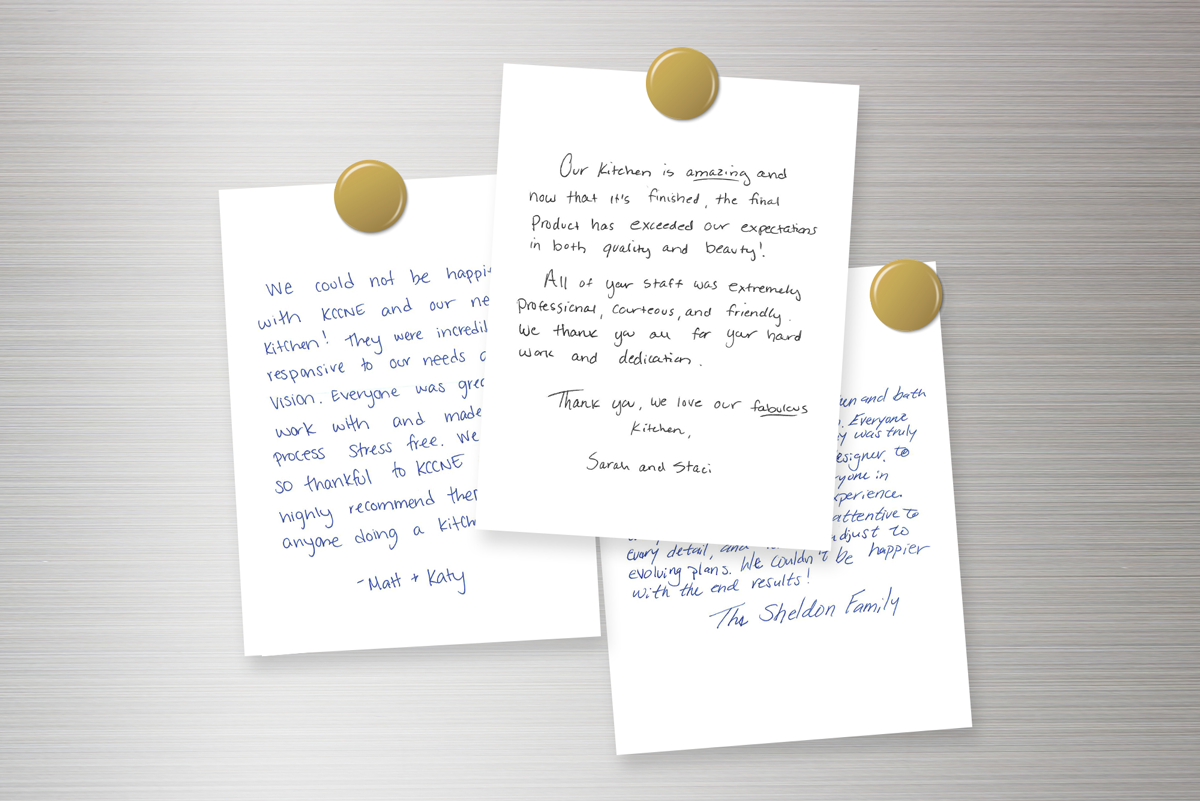 We could not be happi
with KCCNE and our ne
Kitchen! They were incredil
responsive to our needs a
vision. Everyone was grea
work with and made
process stress free. We
so thankful to KCCNE
highly recommend ther
anyone doing a kitch
- Matt + Katy
Our Kitchen is amazing and
now that it's finished, the final
Product has exceeded our expectations
in both quality and beauty!
All of your staff was extremely
Professional, courteous, and friendly.
We thank you all for your hard
work and dedication.
Thank you, we love our fabulous
Kitchen,
Sarah and Staci
en and bath
. Everyone
y was truly
esigner. to
yone in
xperience.
attentive to
djust to
every detail, and
evolving plans. We couldn't be happier
with the end results!
The Sheldon Family